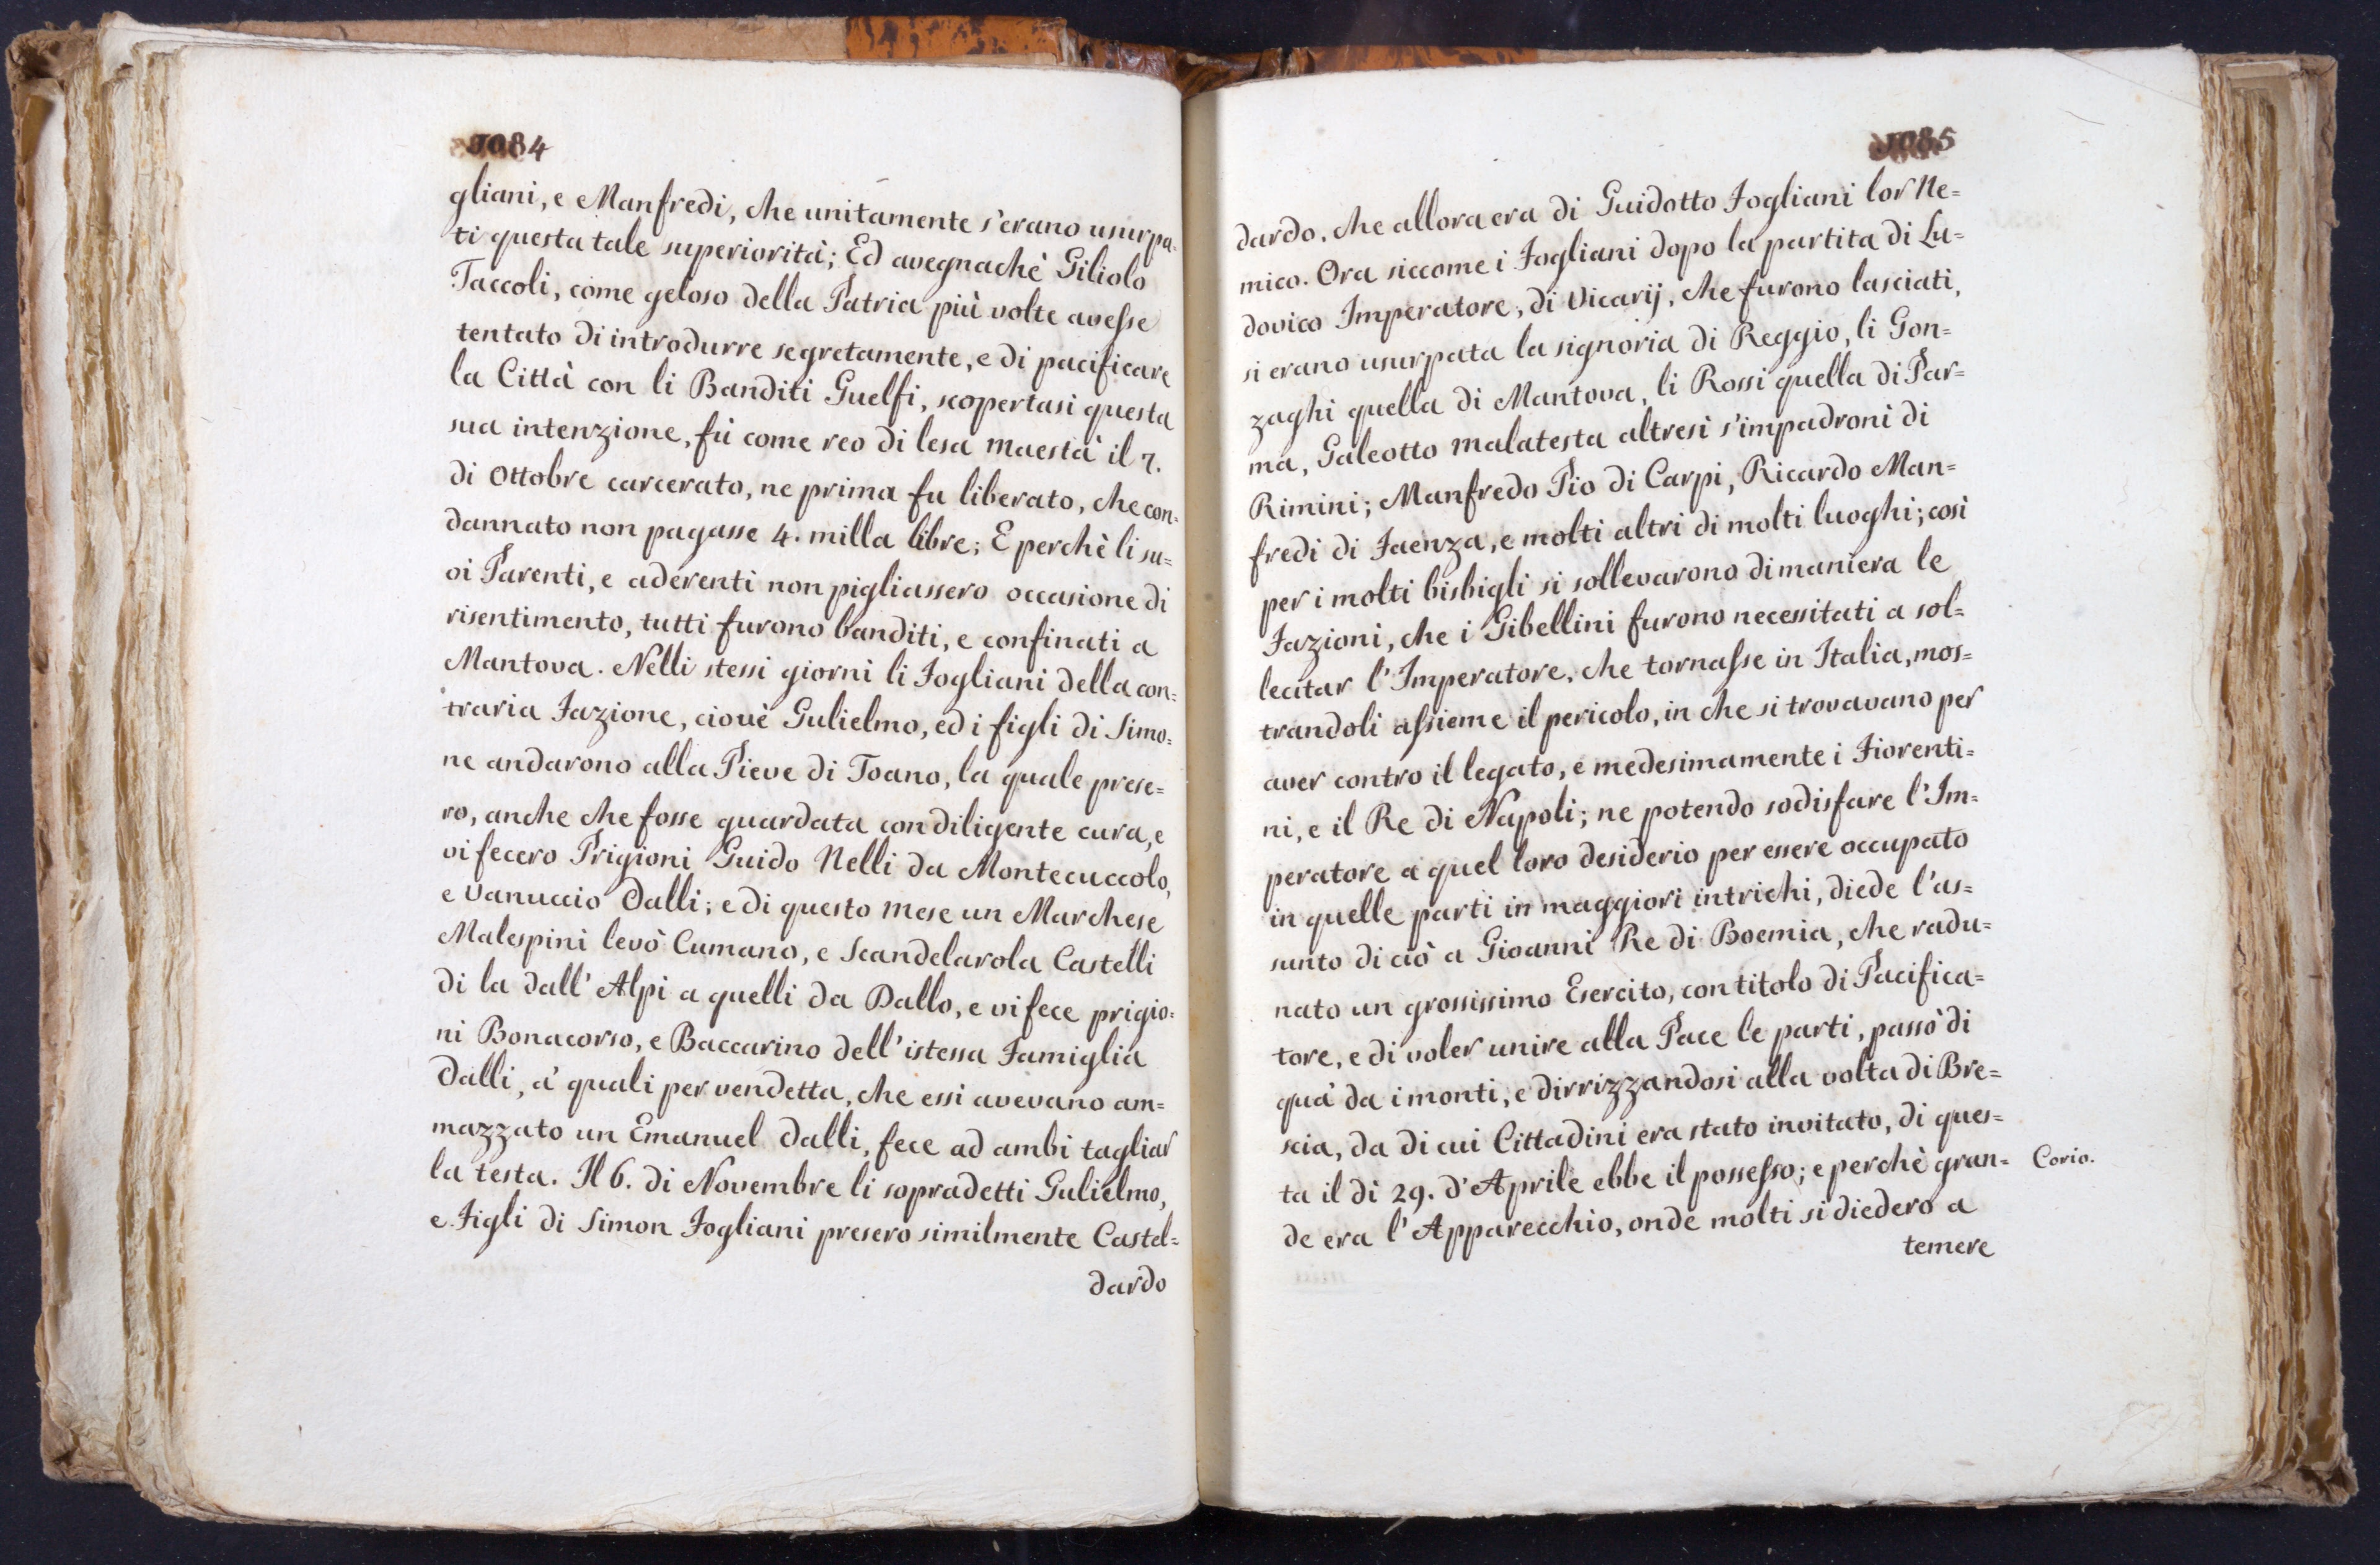 1084
gliani, e Manfredi, che unitamente s'erano usurpa=
ti questa tale superiorità; Ed avegnachè Giliolo
Taccoli, come geloso della Patria più volte avesse
tentato di introdurre segretamente, e di pacificare
la Città con li Banditi Guelfi, scopertasi questa
sua intenzione, fù come reo di lesa Maestà il 7.
di Ottobre carcerato, ne prima fu liberato, che con=
dannato non pagasse 4. milla libre; E perchè li su=
oi Parenti, e aderenti non pigliassero occasione di
risentimento, tutti furono banditi, e confinati a
Mantova. Nelli stessi giorni li Fogliani della con=
traria Fazione, ciouè Gulielmo, ed i figli di Simo=
ne andarono alla Pieve di Toano, la quale prese=
ro, anche che fosse guardata con diligente cura, e
vi fecero Prigioni Guido Nelli da Montecuccolo,
e Vanuccio Dalli; e di questo mese un Marchese
Malespini levò Cumano, e Scandelarola Castelli
di la dall'Alpi a quelli da Dallo, e vi fece prigio=
ni Bonacorso, e Baccarino dell'istessa Famiglia
Dalli, a' quali per vendetta, che essi avevano am=
mazzato un Emanuel Dalli, fece ad ambi tagliar
la testa. Il 6. di Novembre li sopradetti Gulielmo,
e Figli di Simon Fogliani presero similmente Castel=
dardo
1085
dardo, che allora era di Guidotto Fogliani lor Ne=
mico. Ora siccome i Fogliani dopo la partita di Lu=
dovico Imperatore, di Vicarij, che furono lasciati,
si erano usurpata la signoria di Reggio, li Gon=
zaghi quella di Mantova, li Rossi quella di Par=
ma, Galeotto Malatesta altresì s'impadronì di
Rimini; Manfredo Pio di Carpi, Ricardo Man=
fredi di Faenza, e molti altri di molti luoghi; così
per i molti bisbigli si sollevarono di maniera le
Fazioni, che i Gibellini furono necessitati a sol=
lecitar l'Imperatore, che tornasse in Italia, mos=
trandoli assieme il pericolo, in che si trovavano per
aver contro il legato, e medesimamente i Fiorenti=
ni, e il Re di Napoli; ne potendo sodisfare l'Im=
peratore a quel loro desiderio per essere occupato
in quelle parti in maggiori intrichi, diede l'as=
sunto di ciò a Gioanni Re di Boemia, che radu=
nato un grossissimo Esercito, con titolo di Pacifica=
tore, e di voler unire alla Pace le parti, passò di
quà da i monti, e dirrizzandosi alla volta di Bre=
scia, da di cui Cittadini era stato invitato, di ques=
ta il dì 29. d'Aprile ebbe il possesso; e perchè gran=
Corio.
de era l'Apparecchio, onde molti si diedero a
temere